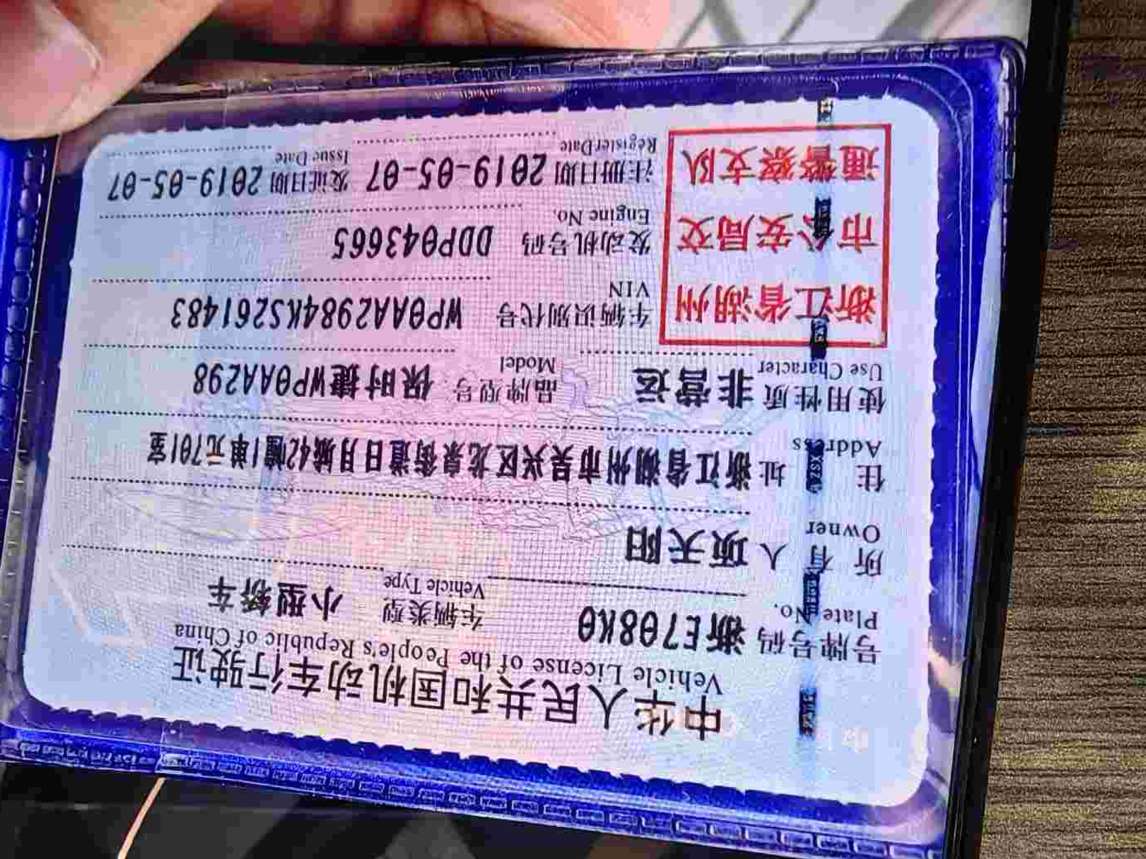 中华人民共和国机动车行驶证
Vehicle License of the People's Republic of China
号牌号码 浙E708K0 车辆类型 小型轿车
Plate No. Vehicle Type
所有人 项天阳
Owner
住址 浙江省湖州市吴兴区龙泉街道日月城42幢1单元701室
Address
使用性质 非营运 品牌型号 保时捷WP0AA298
Use Character Model
浙江省湖州
市公安局交
通警察支队
车辆识别代号 WP0AA2984KS261483
VIN
发动机号码 DDP043665
Engine No.
注册日期 2019-05-07 发证日期 2019-05-07
Register Date Issue Date